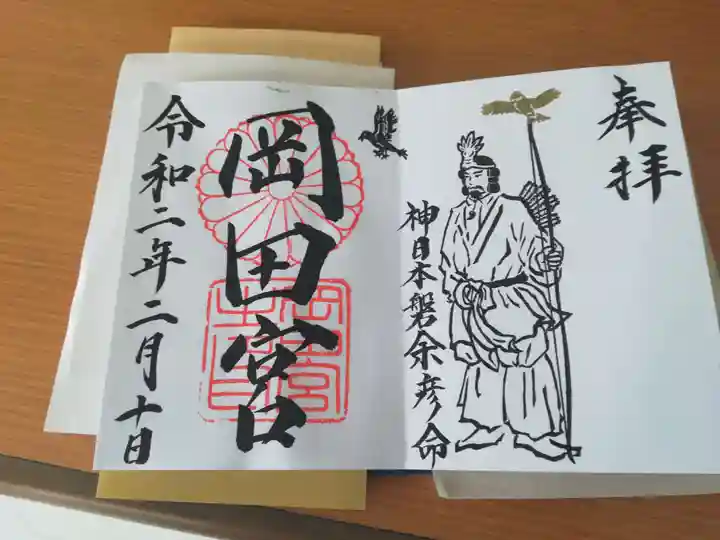 奉拝
神日本磐余彦命
岡田宮
令和二年二月十日